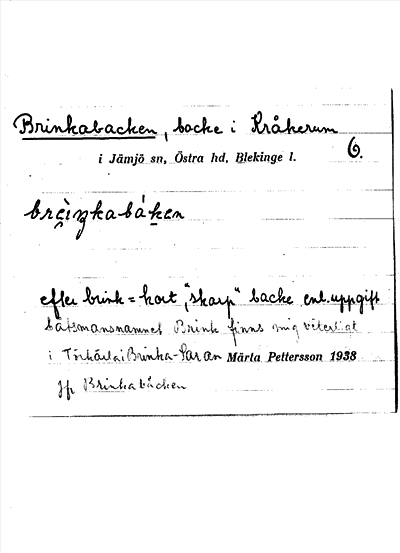 Brinkabacken, backe i Kråkerum
6.
i Jämjö sn, Östra hd, Blekinge l.
efter brink = kort, "skarp" backe enl. uppgift
båtsmansnamnet Brink finns mig veterligt
i Torhävla i Brinka-
Märta Pettersson 1938
jfr Brinkabäcken